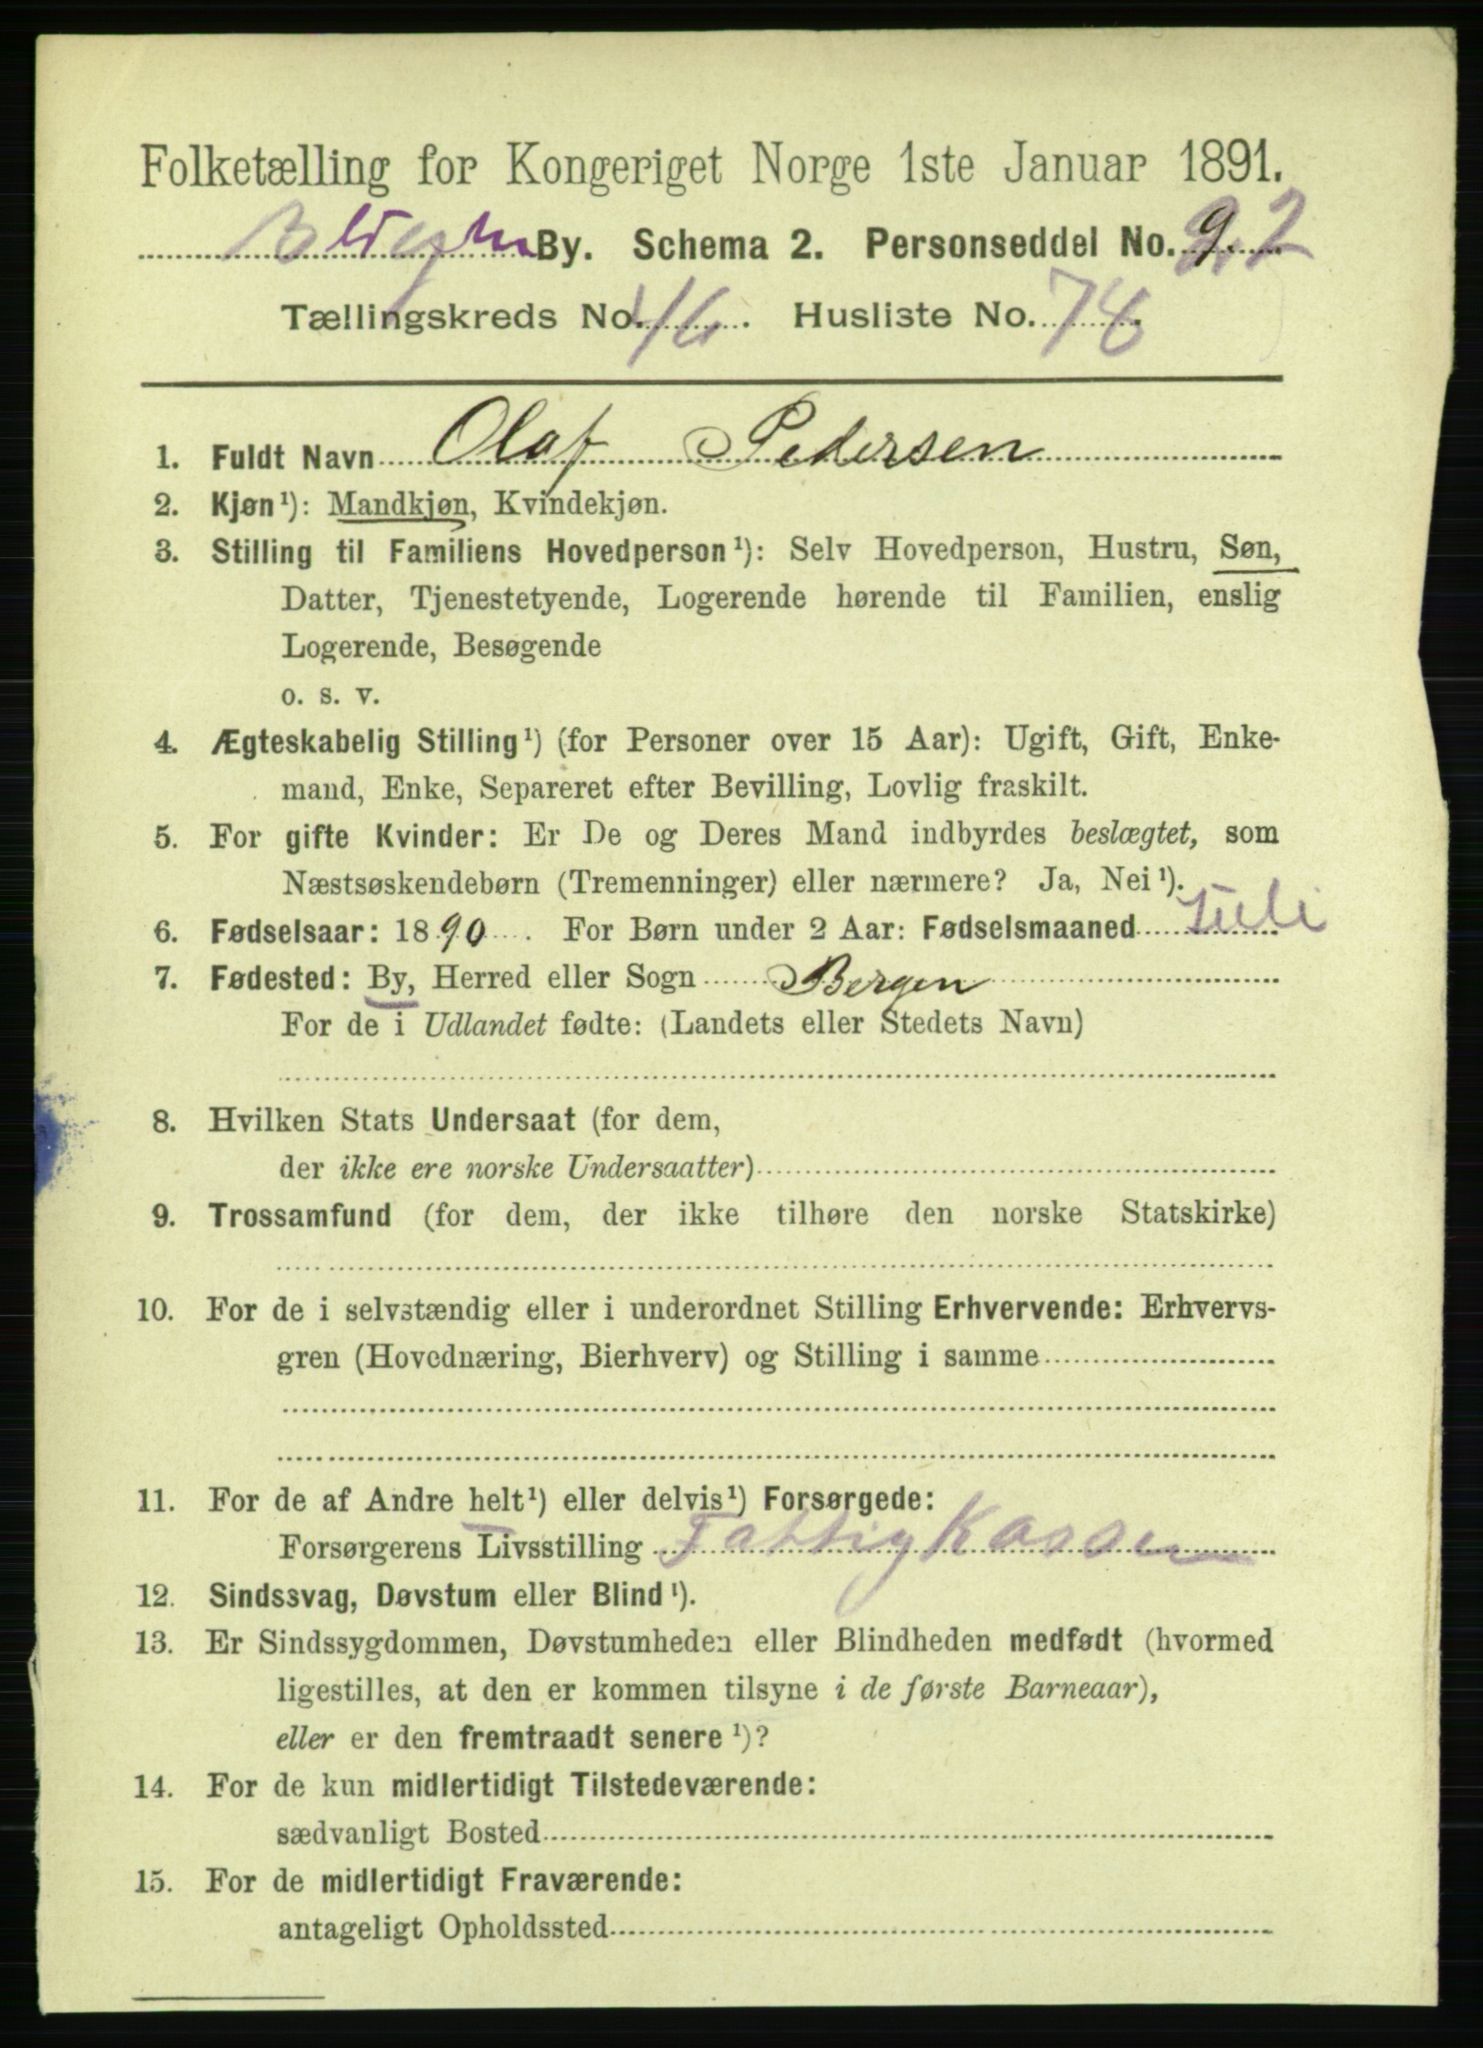 Folketælling for Kongeriget Norge 1ste Januar 1891.
By. Schema 2. Personseddel No. 9. 22
Tællingskreds No. 46. Husliste No. 78.
1. Fuldt Navn Olaf Pedersen
2. Kjøn¹): Mandkjøn, Kvindekjøn.
3. Stilling til Familiens Hovedperson¹): Selv Hovedperson, Hustru, Søn,
Datter, Tjenestetyende, Logerende hørende til Familien, enslig
Logerende, Besøgende
o. s. v.
4. Ægteskabelig Stilling¹) (for Personer over 15 Aar): Ugift, Gift, Enke-
mand, Enke, Separeret efter Bevilling, Lovlig fraskilt.
5. For gifte Kvinder: Er De og Deres Mand indbyrdes beslægtet, som
Næstsøskendebørn (Tremenninger) eller nærmere? Ja, Nei¹).
6. Fødselsaar: 1890. For Børn under 2 Aar: Fødselsmaaned Juli
7. Fødested: By, Herred eller Sogn Bergen
For de i Udlandet fødte: (Landets eller Stedets Navn)
8. Hvilken Stats Undersaat (for dem,
der ikke ere norske Undersaatter)
9. Trossamfund (for dem, der ikke tilhøre den norske Statskirke)
10. For de i selvstændig eller i underordnet Stilling Erhvervende: Erhvervs-
gren (Hovednæring, Bierhverv) og Stilling i samme
11. For de af Andre helt¹) eller delvis¹) Forsørgede:
Forsørgerens Livsstilling Fattigkassen
12. Sindssvag, Døvstum eller Blind¹).
13. Er Sindssygdommen, Døvstumheden eller Blindheden medfødt (hvormed
ligestilles, at den er kommen tilsyne i de første Barneaar),
eller er den fremtraadt senere¹)?
14. For de kun midlertidigt Tilstedeværende:
sædvanligt Bosted
15. For de midlertidigt Fraværende:
antageligt Opholdssted